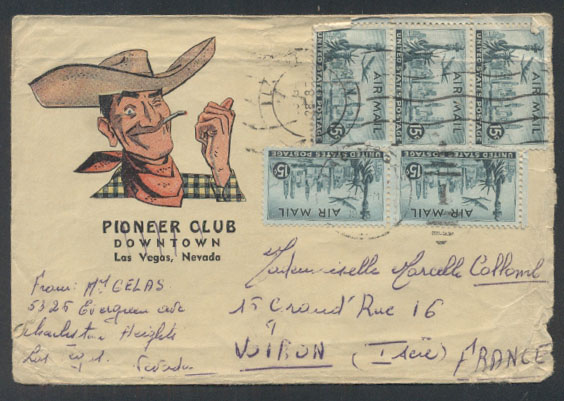 PIONEER CLUB
DOWNTOWN
Las Vegas, Nevada
From: Mr CELAS
5325 Evergreen ave
Charleston Heights
Las
Nevada
Mademoiselle Marcelle Collomb
15 Grand'Rue 16
à
VOIRON (Isère) FRANCE
UNITED STATES POSTAGE
AIR MAIL
15¢
UNITED STATES POSTAGE
AIR MAIL
15¢
UNITED STATES POSTAGE
AIR MAIL
15¢
UNITED STATES POSTAGE
AIR MAIL
15¢
UNITED STATES POSTAGE
AIR MAIL
15¢